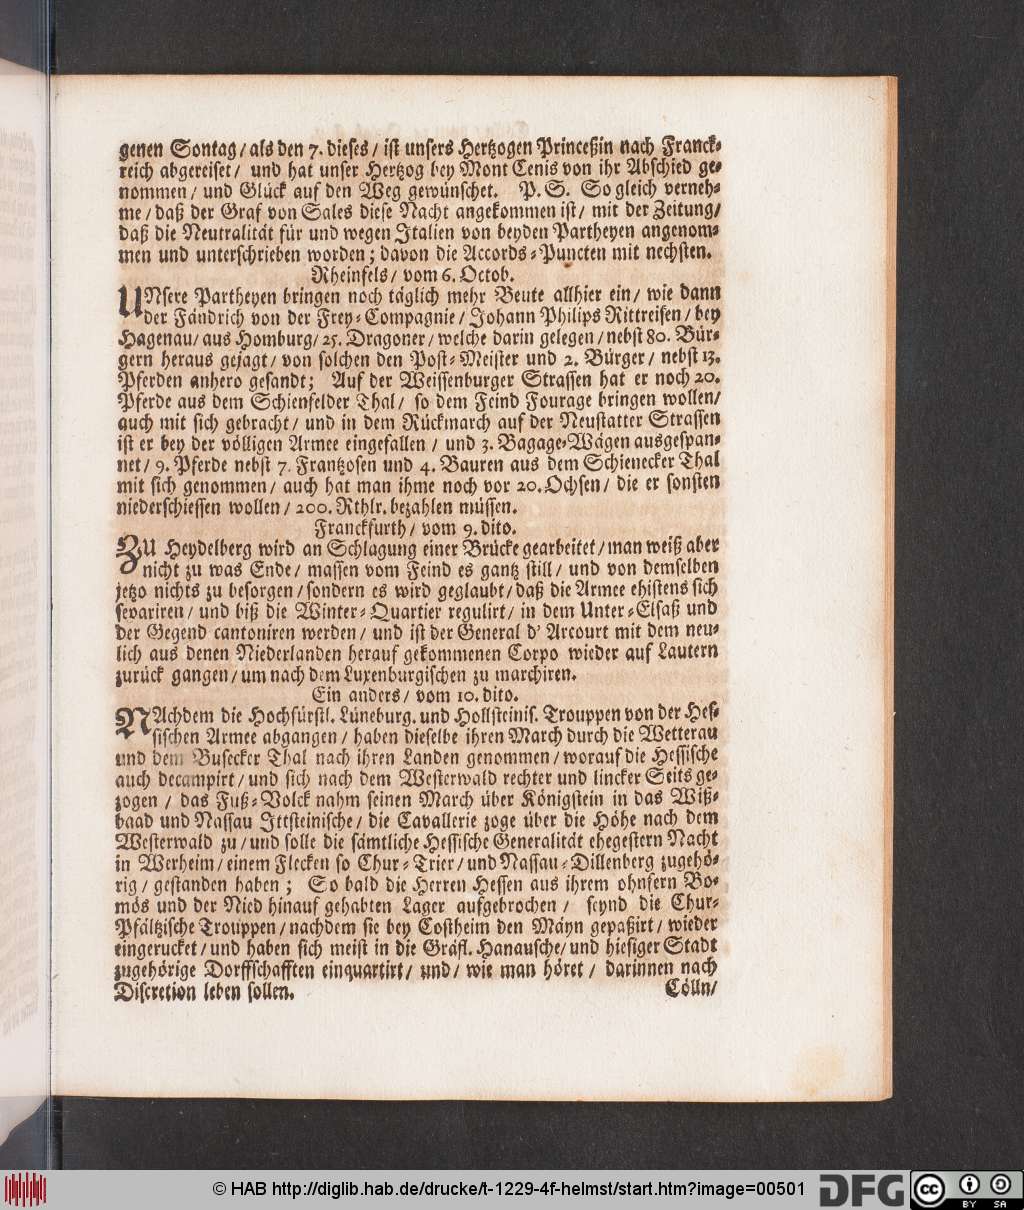 genen Sontag/ als den 7. dieses/ ist unsers Hertzogen Princeßin nach Franck-
reich abgereiset/ und hat unser Hertzog bey Mont Cenis von ihr Abschied ge-
nommen/ und Glück auf den Weg gewünschet. P. S. So gleich verneh-
me/ daß der Graf von Sales diese Nacht angekommen ist/ mit der Zeitung/
daß die Neutralität für und wegen Italien von beyden Partheyen angenom-
men und unterschrieben worden; davon die Accords-Puncten mit nechsten.
Rheinfels/ vom 6. Octob.
UNsere Partheyen bringen noch täglich mehr Beute allhier ein/ wie dann
der Fändrich von der Frey-Compagnie/ Johann Philips Rittreisen/ bey
Hagenau/ aus Homburg/ 25. Dragoner/ welche darin gelegen/ nebst 80. Bür-
gern heraus gejagt/ von solchen den Post-Meister und 2. Bürger/ nebst 13.
Pferden anhero gesandt; Auf der Weissenburger Strassen hat er noch 20.
Pferde aus dem Schienfelder Thal/ so dem Feind Fourage bringen wollen/
auch mit sich gebracht/ und in dem Rückmarch auf der Neustatter Strassen
ist er bey der völligen Armee eingefallen/ und 3. Bagage-Wägen ausgespan-
net/ 9. Pferde nebst 7. Frantzosen und 4. Bauren aus dem Schienecker Thal
mit sich genommen/ auch hat man ihme noch vor 20. Ochsen/ die er sonsten
niederschiessen wollen/ 200. Rthlr. bezahlen müssen.
Franckfurth/ vom 9. dito.
ZU Heydelberg wird an Schlagung einer Brücke gearbeitet/ man weiß aber
nicht zu was Ende/ massen vom Feind es gantz still/ und von demselben
jetzo nichts zu besorgen/ sondern es wird geglaubt/ daß die Armee ehistens sich
separiren/ und biß die Winter-Quartier regulirt/ in dem Unter-Elsaß und
der Gegend cantoniren werden/ und ist der General d' Arcourt mit dem neu-
lich aus denen Niederlanden herauf gekommenen Corpo wieder auf Lautern
zurück gangen/ um nach dem Luxenburgischen zu marchiren.
Ein anders/ vom 10. dito.
NAchdem die Hochfürstl. Lüneburg. und Hollsteinis. Trouppen von der Hes-
sischen Armee abgangen/ haben dieselbe ihren March durch die Wetterau
und dem Busecker Thal nach ihren Landen genommen/ worauf die Hessische
auch decampirt/ und sich nach dem Westerwald rechter und lincker Seits ge-
zogen/ das Fuß-Volck nahm seinen March über Königstein in das Wiß-
baad und Nassau Ittsteinische/ die Cavallerie zoge über die Höhe nach dem
Westerwald zu/ und solle die sämtliche Hessische Generalität ehegestern Nacht
in Werheim/ einem Flecken so Chur-Trier/ und Nassau-Dillenberg zugehö-
rig/ gestanden haben; So bald die Herren Hessen aus ihrem ohnfern Bo-
mös und der Nied hinauf gehabten Lager aufgebrochen/ seynd die Chur-
Pfältzische Trouppen/ nachdem sie bey Costheim den Mäyn gepaßirt/ wieder
eingerucket/ und haben sich meist in die Gräfl. Hanausche/ und hiesiger Stadt
zugehörige Dorffschafften einquartirt/ und/ wie man höret/ darinnen nach
Discretion leben sollen.
Cölln/
© HAB http://diglib.hab.de/drucke/t-1229-4f-helmst/start.htm?image=00501
DFG
cc
BY SA